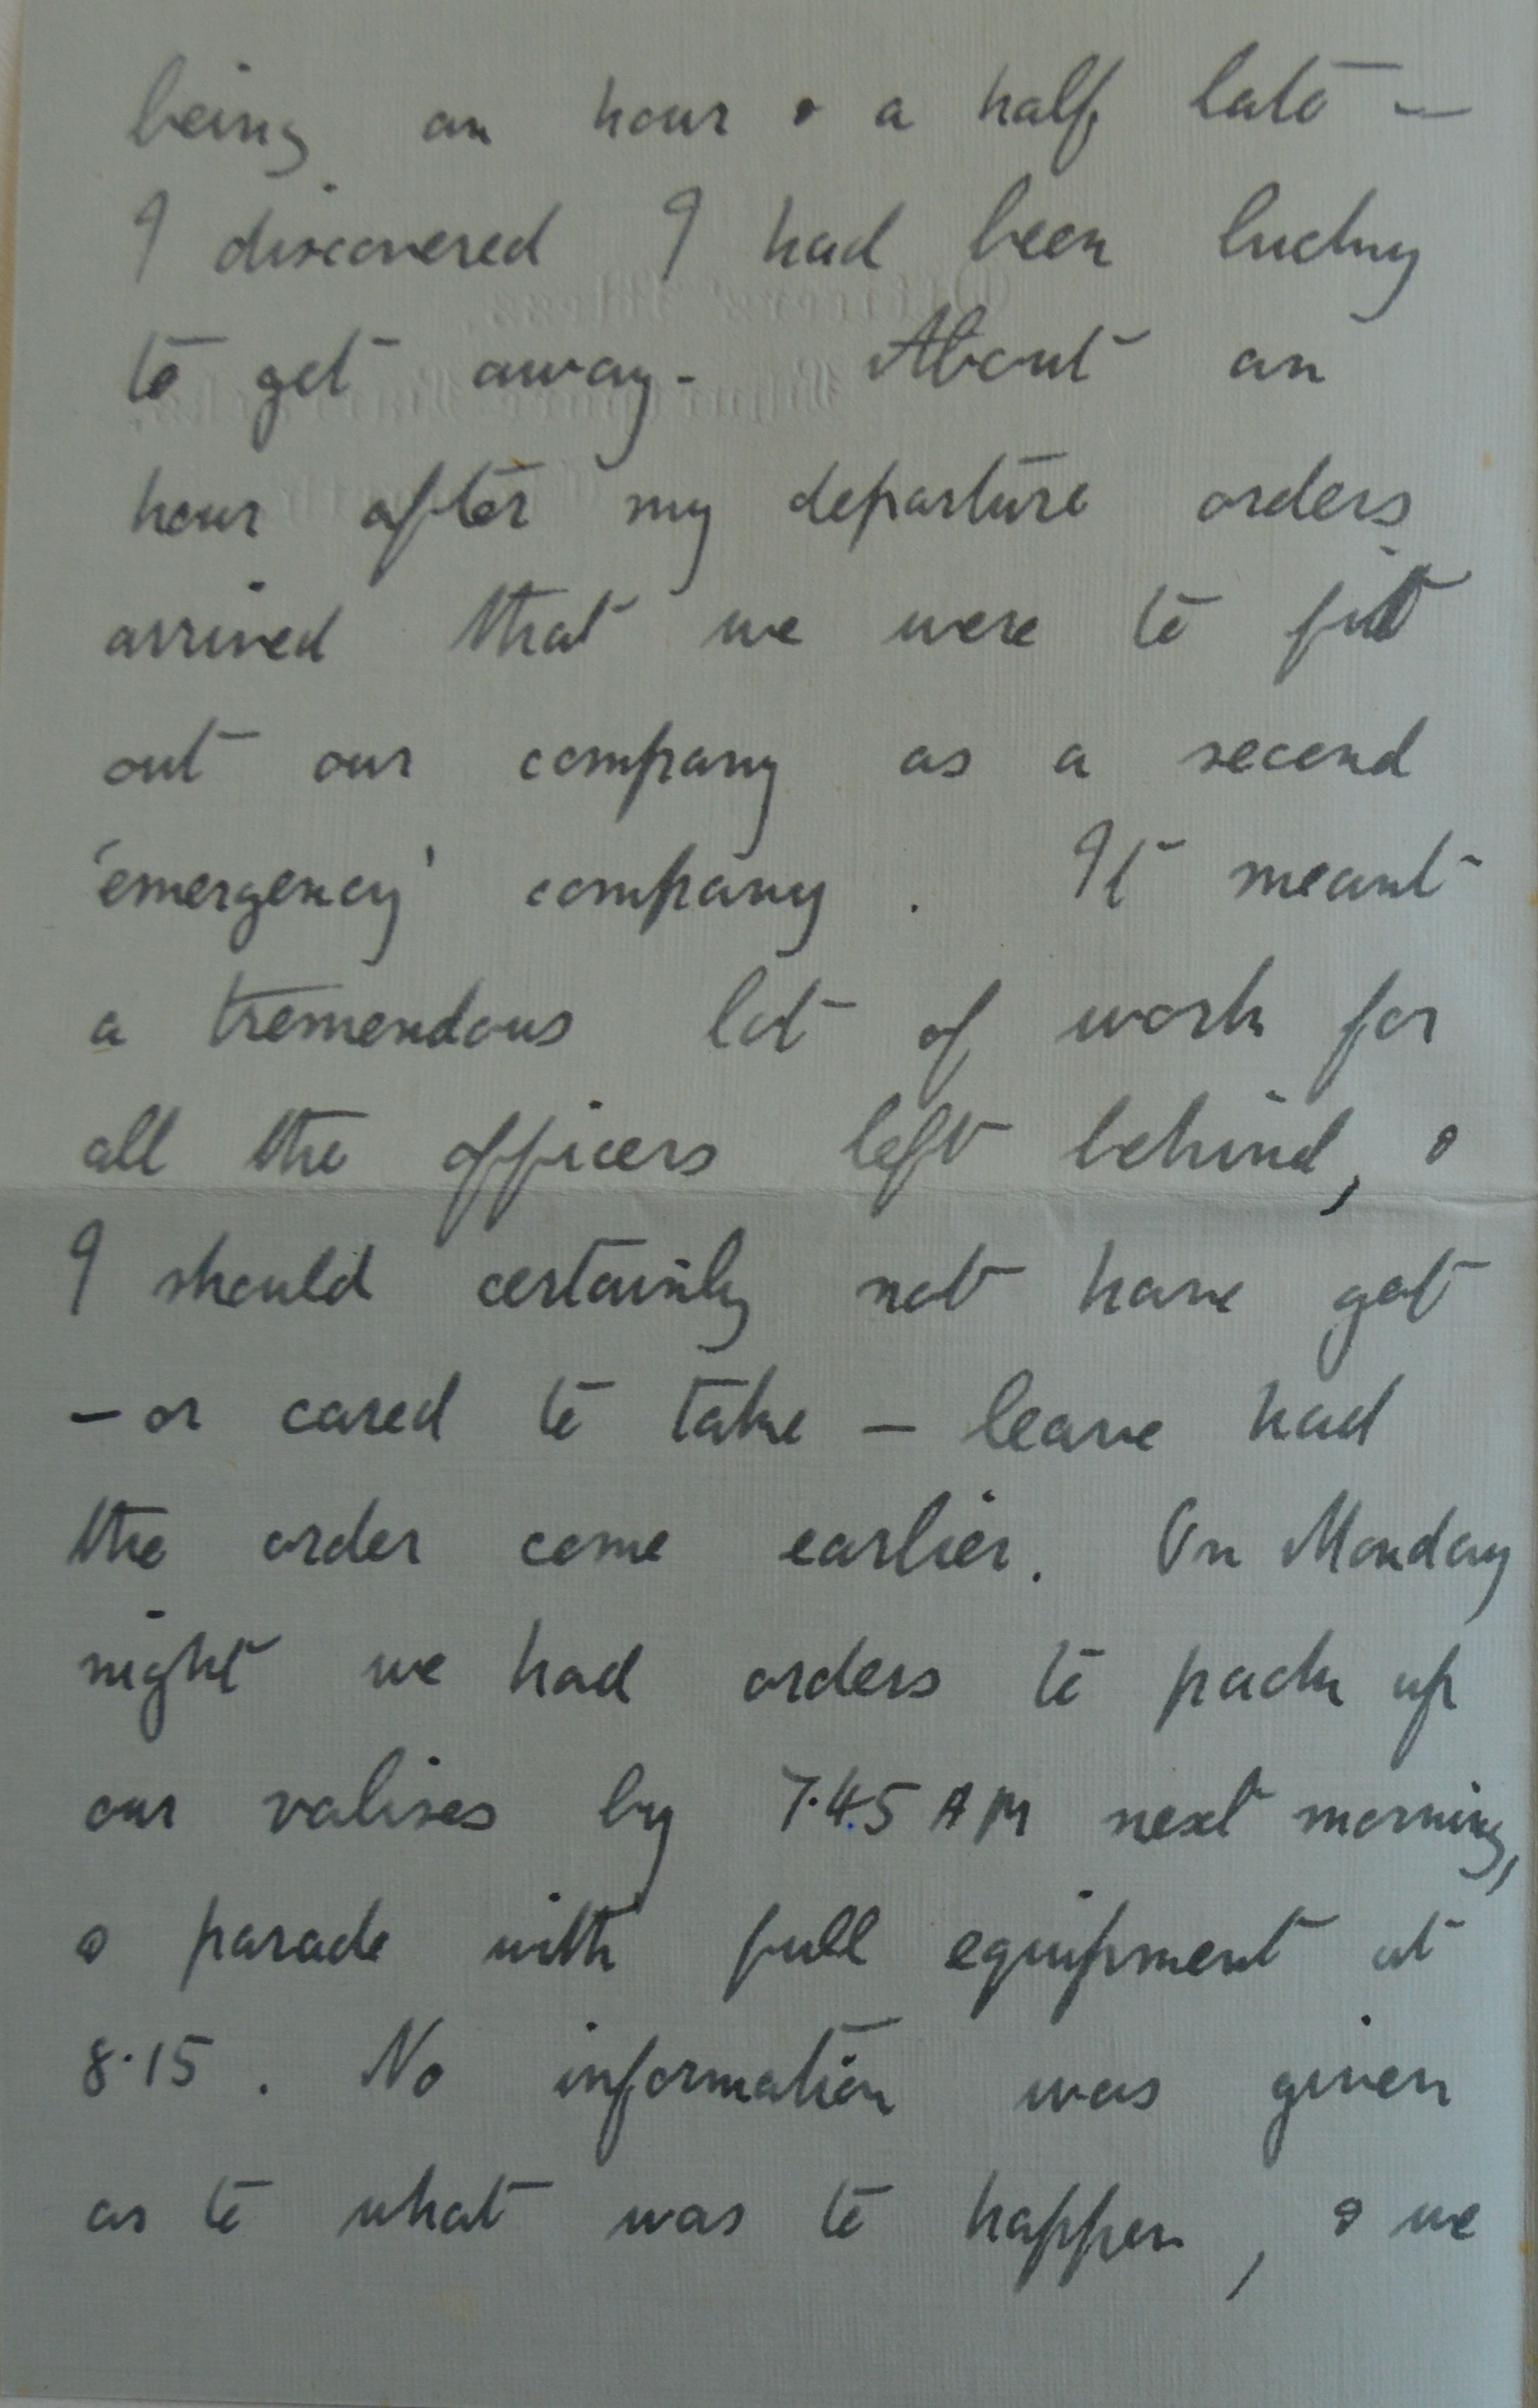 being an hour & a half late —
I discovered I had been lucky
to get away. About an
hour after my departure orders
arrived that we were to fit
out our company as a second
'emergency' company. It meant
a tremendous lot of work for
all the officers left behind, &
I should certainly not have got
— or cared to take — leave had
the order come earlier. On Monday
night we had orders to pack up
our valises by 7.45 AM next morning,
& parade with full equipment at
8.15. No information was given
as to what was to happen, & we